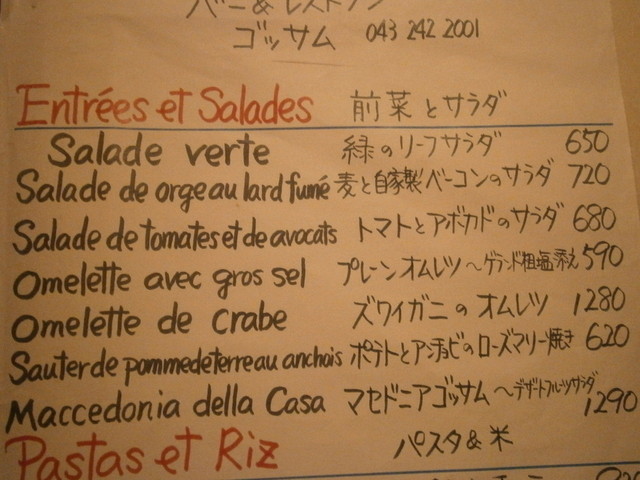 バー&レストラン
ゴッサム 043 242 2001
Entrées et Salades 前菜とサラダ
Salade verte 緑のリーフサラダ 650
Salade de orge au lard fumé 麦と自家製ベーコンのサラダ 720
Salade de tomates et de avocats トマトとアボカドのサラダ 680
Omelette avec gros sel プレーンオムレツ〜ゲランド粗塩添え 590
Omelette de crabe ズワイガニのオムレツ 1280
Sauter de pomme de terre au anchois ポテトとアンチョビのローズマリー焼き 620
Maccedonia della Casa マセドニアゴッサム〜デザートフルーツサラダ 1290
Pastas et Riz パスタ&米